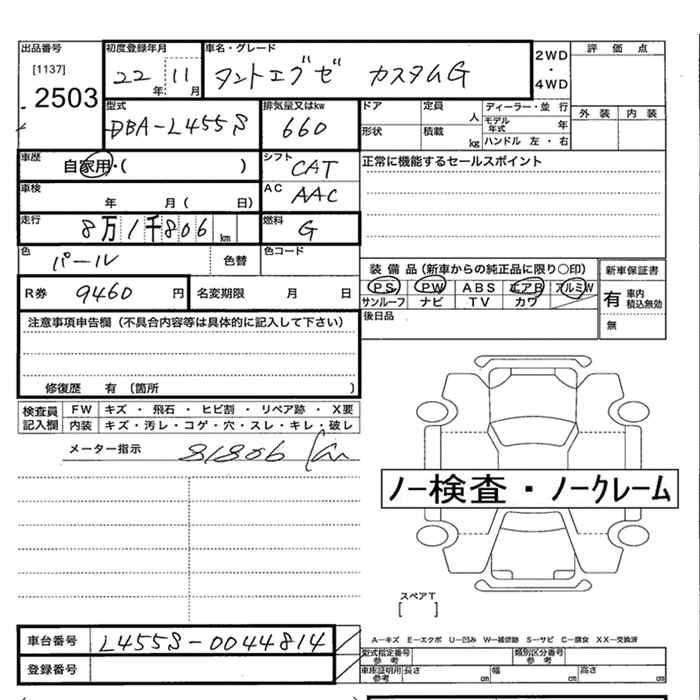 出品番号 初度登録年月 車名・グレード 2WD ・ 4WD 評価点
[1137] 22年 11月 タントエグゼ カスタムG
2503
外装 内装
型式 排気量又はkw ドア 定員 人 ディーラー・並 行
DBA-L455S 660 形状 積載 kg モデル年式 年
ハンドル 左・右
車歴 自家用・( ) シフト CAT 正常に機能するセールスポイント
車検 年 月 ( 日) AC AAC
走行 8万1千806km 燃料 G
色 パール 色替 色コード
装備品(新車からの純正品に限り○印) 新車保証書
R券 9460円 名変期限 月 日 PS PW ABS エアB アルミW 有 車内積込無効
サンルーフ ナビ TV カワ 無
注意事項申告欄(不具合内容等は具体的に記入して下さい) 後日品
修復歴 有 (箇所 )
検査員記入欄 FW キズ ・ 飛石 ・ ヒビ割 ・ リペア跡 ・ X要
内装 キズ・汚レ・コゲ・穴・スレ・キレ・破レ
メーター指示 81806 km
ノー検査・ノークレーム
スペアT
[ ]
車台番号 L455S-0044814
A―キズ E―エクボ U―凹み W―補修跡 S―サビ C―腐食 XX―交換済
型式指定番号 参考 類別区分番号 参考
登録番号 車庫証明用 参考 長さ cm 幅 cm 高さ cm